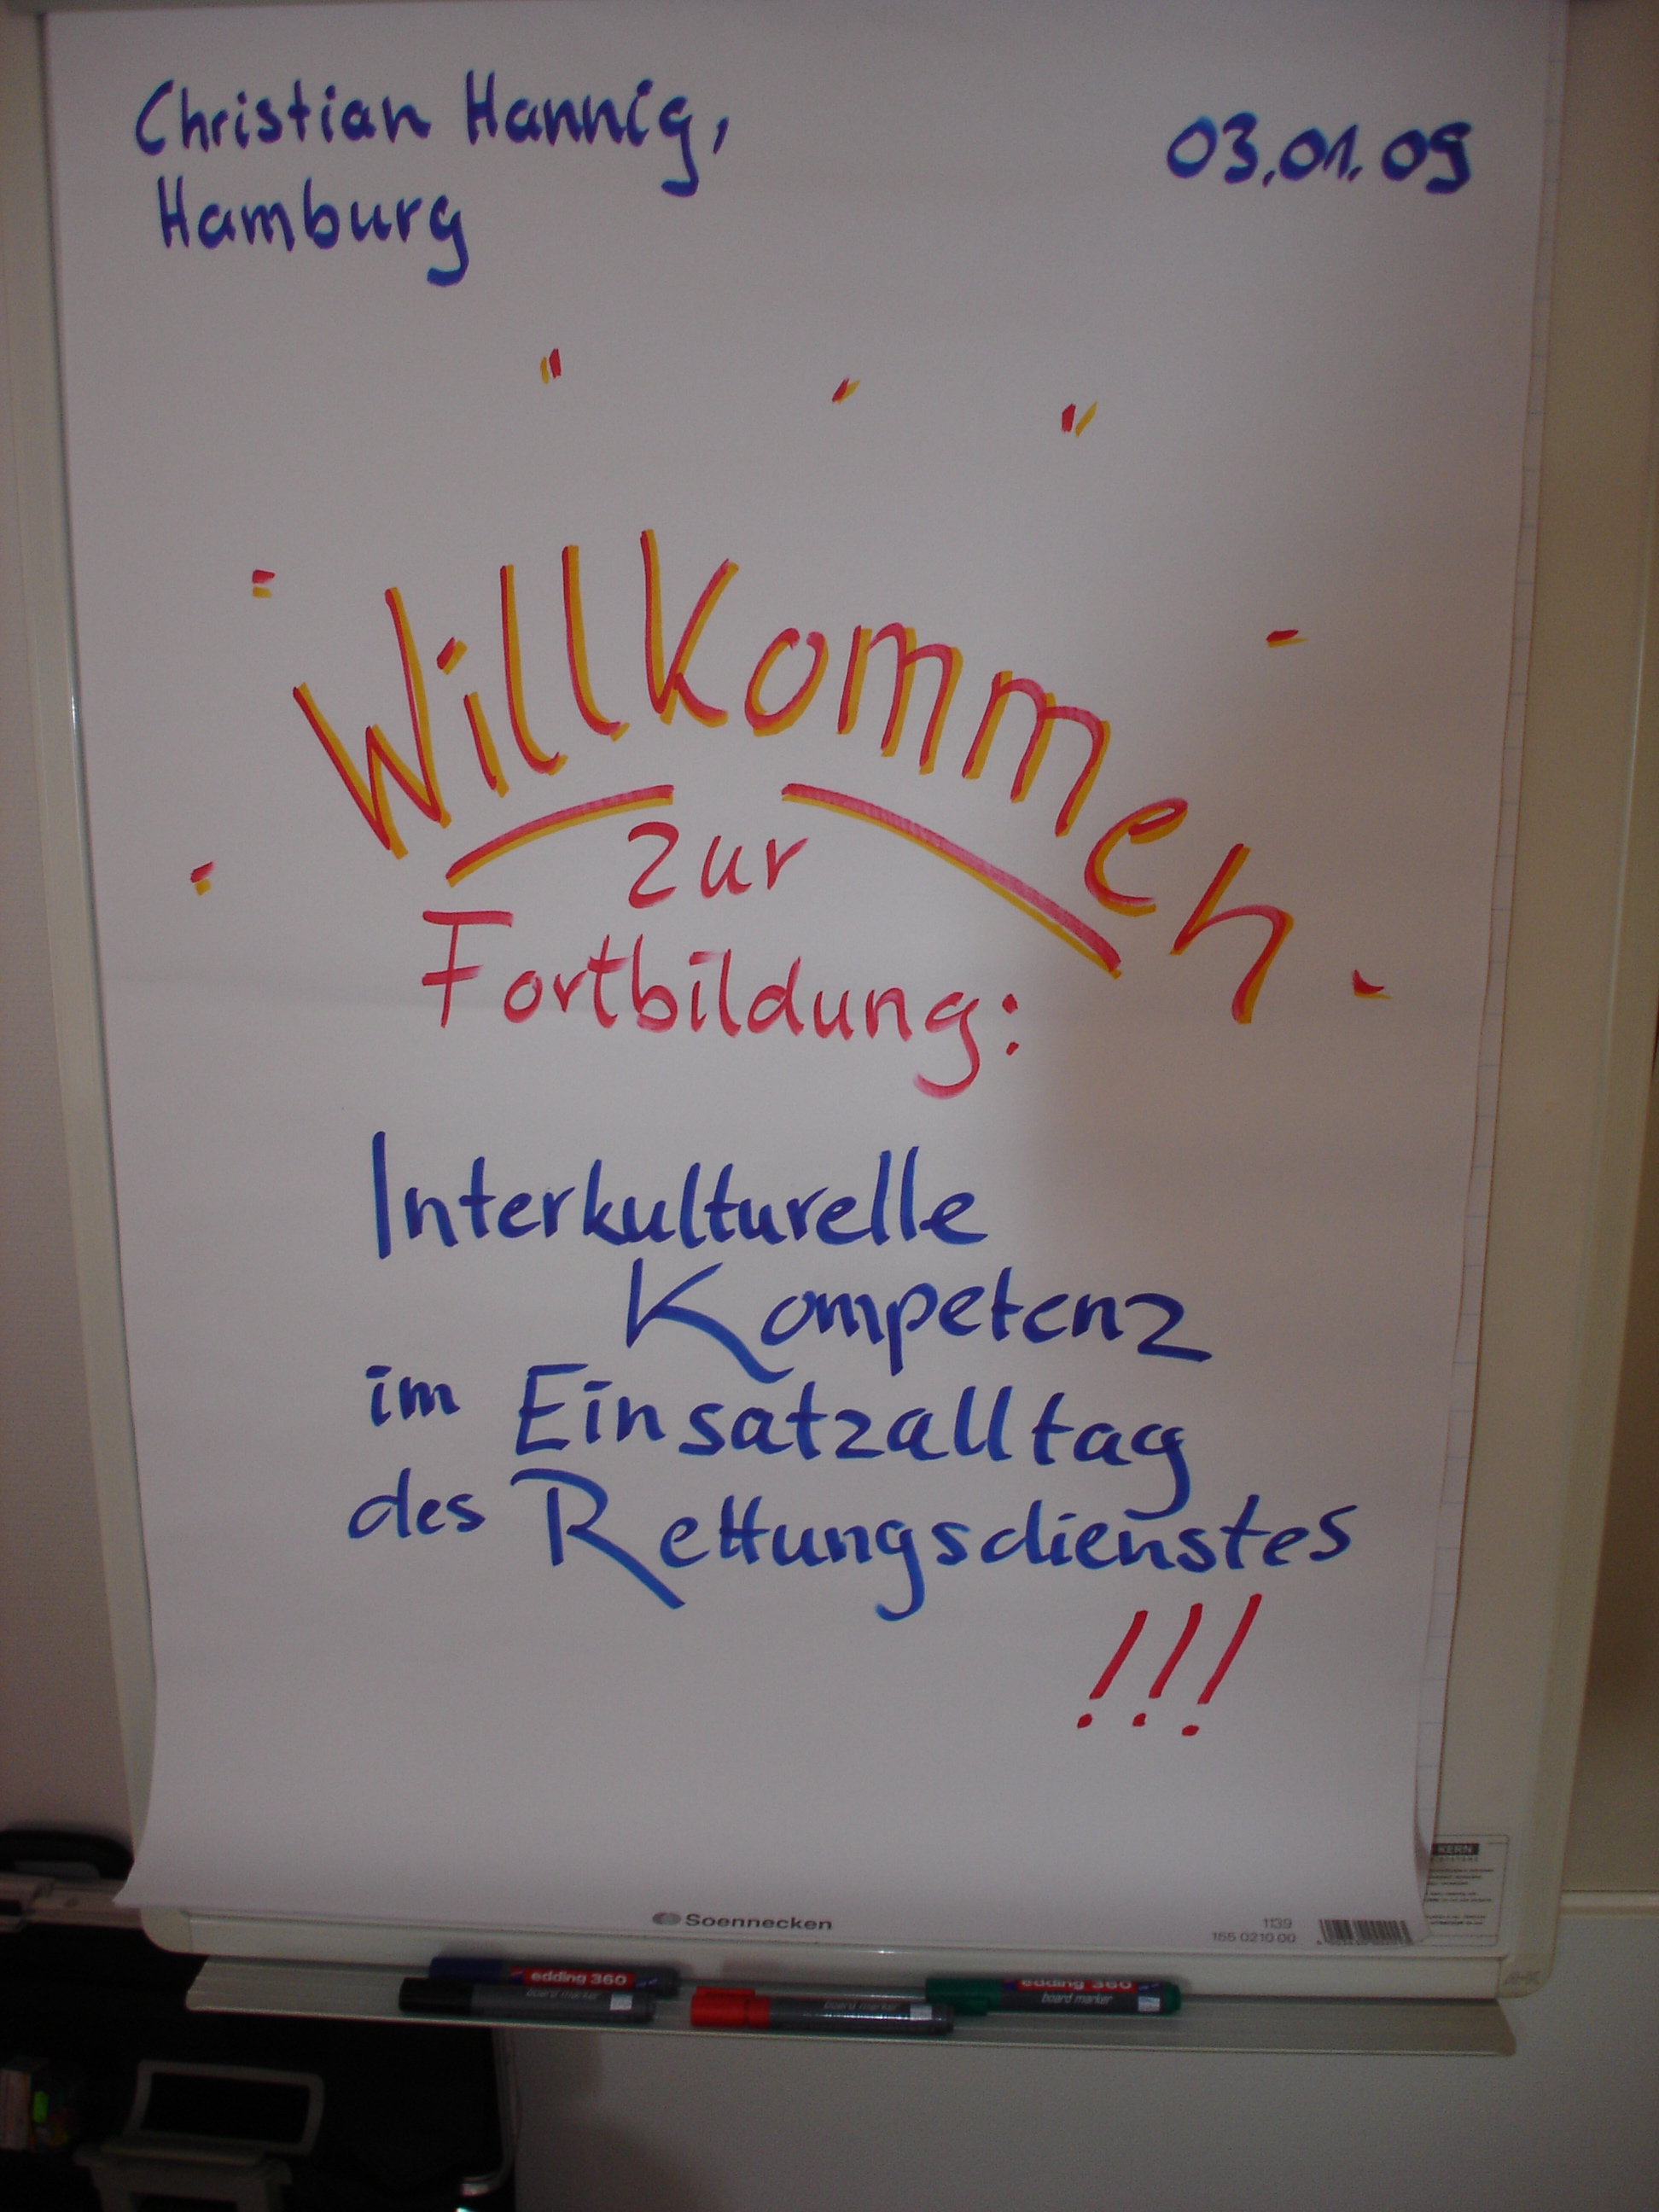 Christian Hannig,
Hamburg
03.01.09
Willkommen
zur
Fortbildung:
Interkulturelle
Kompetenz
im Einsatzalltag
des Rettungsdienstes
!!!
KERN
Soennecken
1139
155 0210 00
edding 360
board marker
board marker
edding 360
board marker